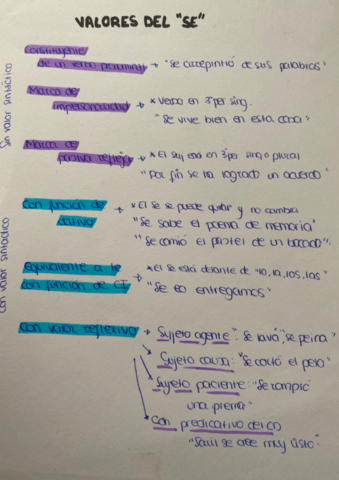 VALORES DEL "SE"
Sin valor sintáctico
Constituyente
de un verbo pronominal → "Se arrepintió de sus palabras"
Marca de
impersonalidad → * Verbo en 3ªper sing.
"Se vive bien en esta casa"
Marca de
pasiva refleja → * El suj está en 3ªper sing o plural
"Por fin se ha logrado un acuerdo"
Con valor sintáctico
Con función de
dativo → * El se se puede quitar y no cambia
"Se sabe el poema de memoria"
"Se comió el pastel de un bocado".
Equivalente a le
con función de CI → * el se está delante de "lo, la, los, las"
"Se lo entregamos"
Con valor reflexivo → Sujeto agente: "Se lava", "se peina"
Sujeto causa: "Se cortó el pelo"
Sujeto paciente: "Se rompió
una pierna"
Con predicativo del CD
"Saúl se cree muy listo"